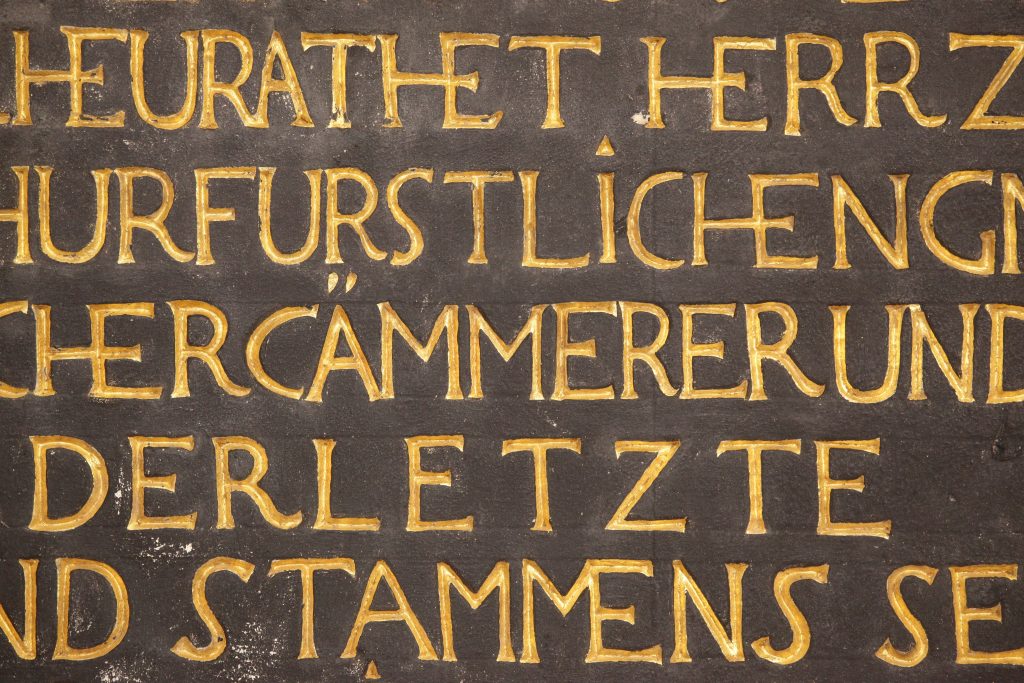 HEURATHET HERR Z
HURFURSTLICHEN GN
CHER CÄMMERER UND
DER LETZTE
ND STAMMENS SE